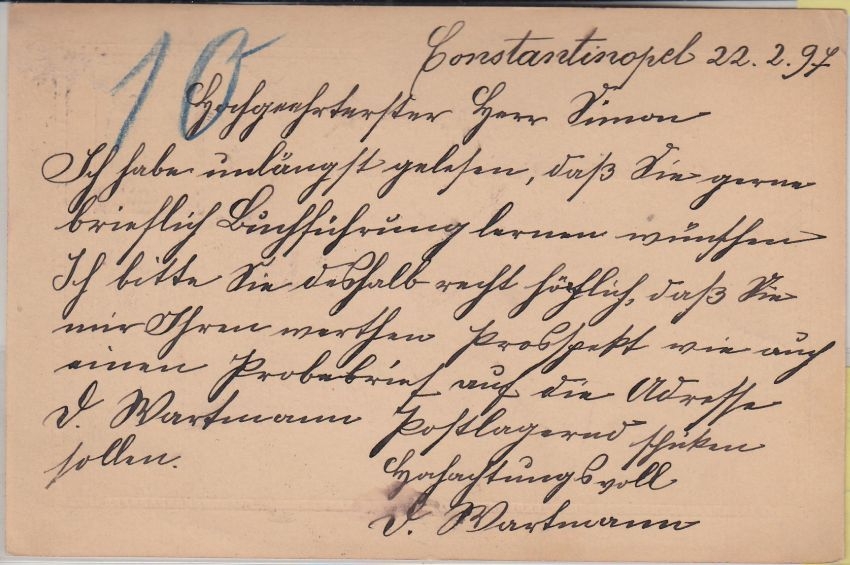 10
Constantinopel 22.2.97
Hochgeehrtester Herr Simon
Ich habe unlängst gelesen, daß Sie gerne
brieflich Buchführung lernen wünschen
Ich bitte Sie deshalb recht höflich, daß Sie
mir Ihren werthen Prospekt wie auch
einen Probebrief auf die Adresse
D. Wartmann Postlagernd schicken
sollen.
Hochachtungsvoll
D. Wartmann